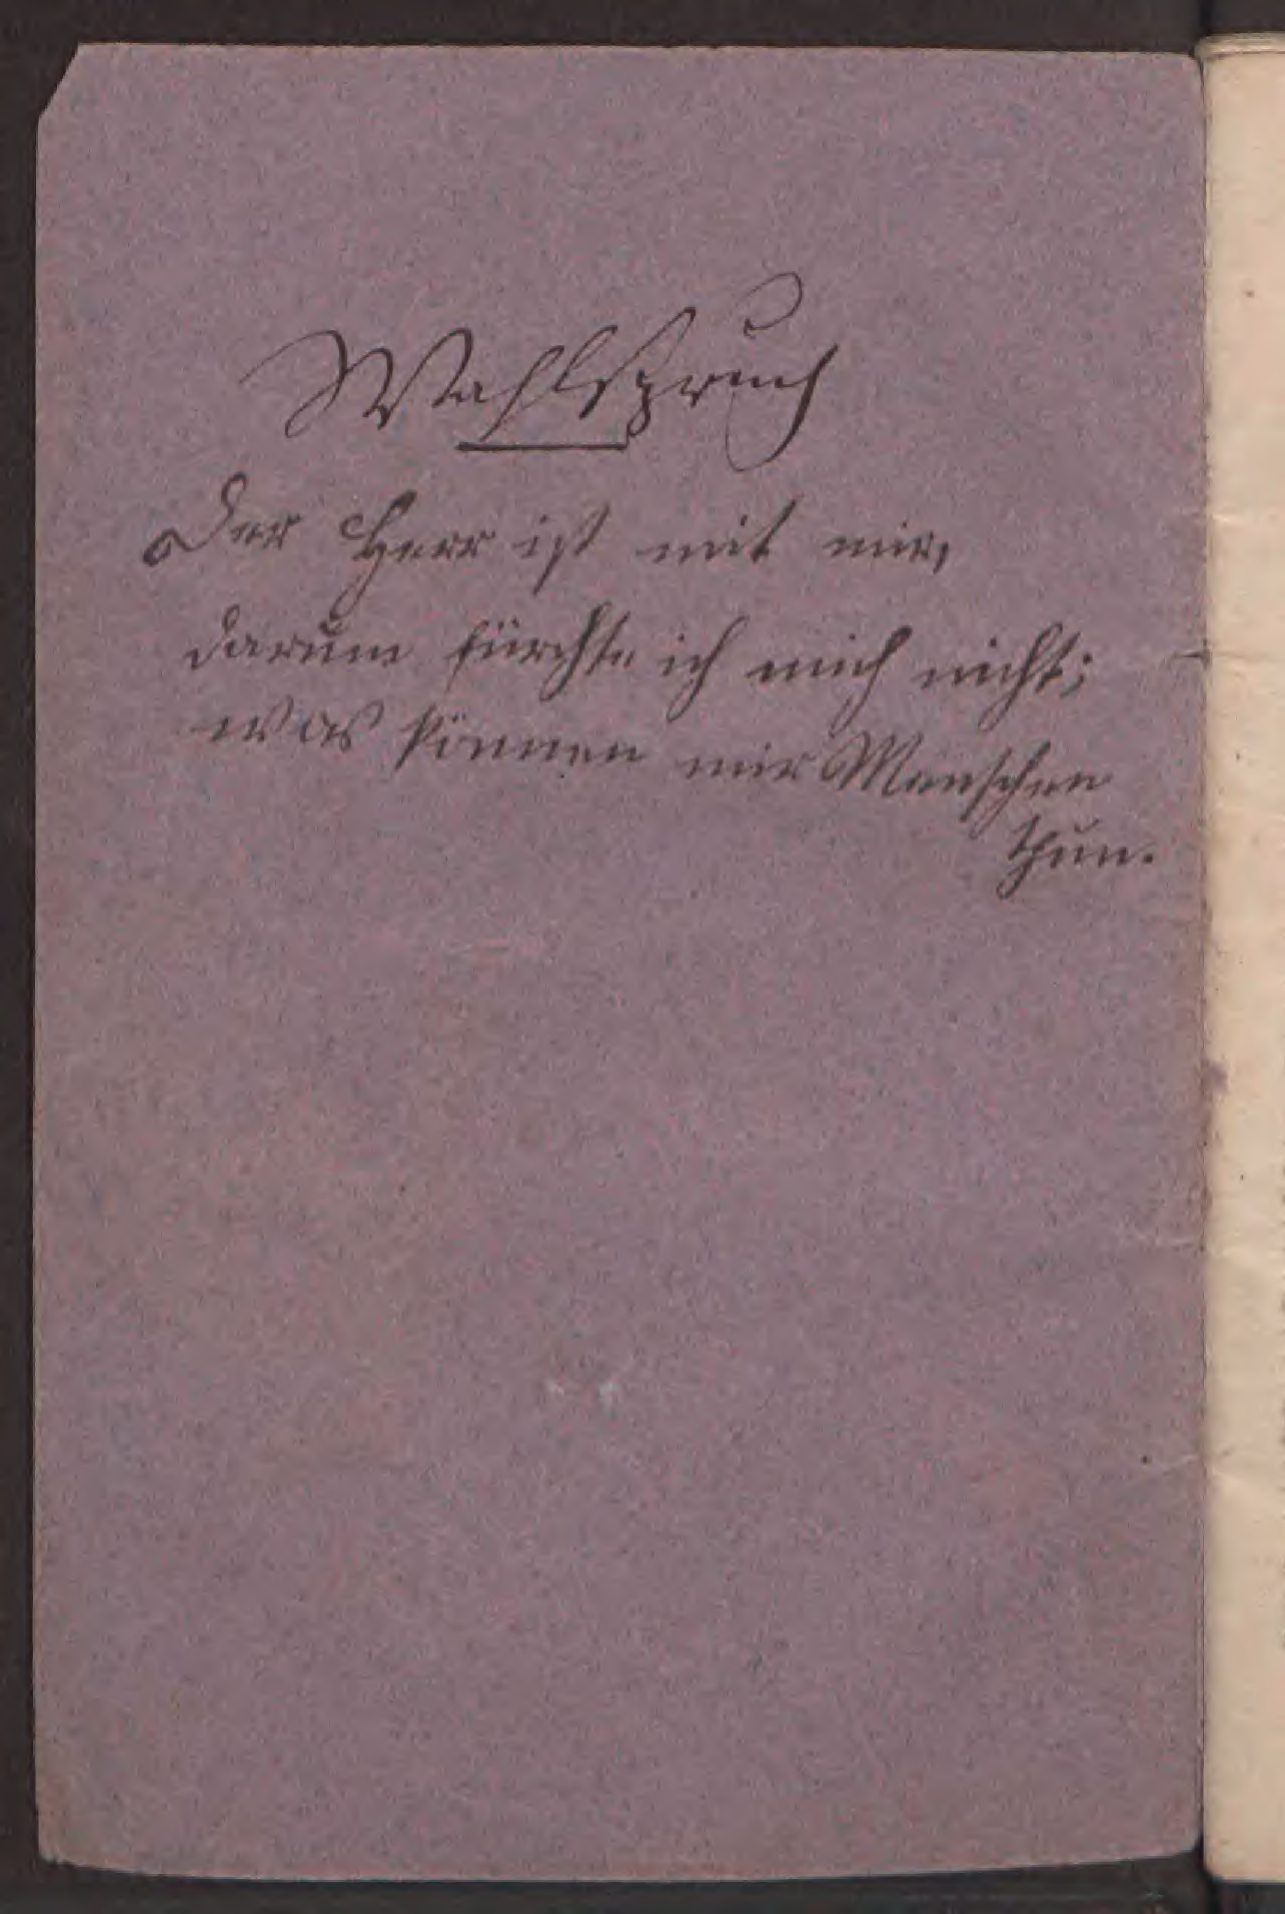 Wahlspruch
Der Herr ist mit mir,
darum fürchte ich mich nicht;
was können mir Menschen
thun.